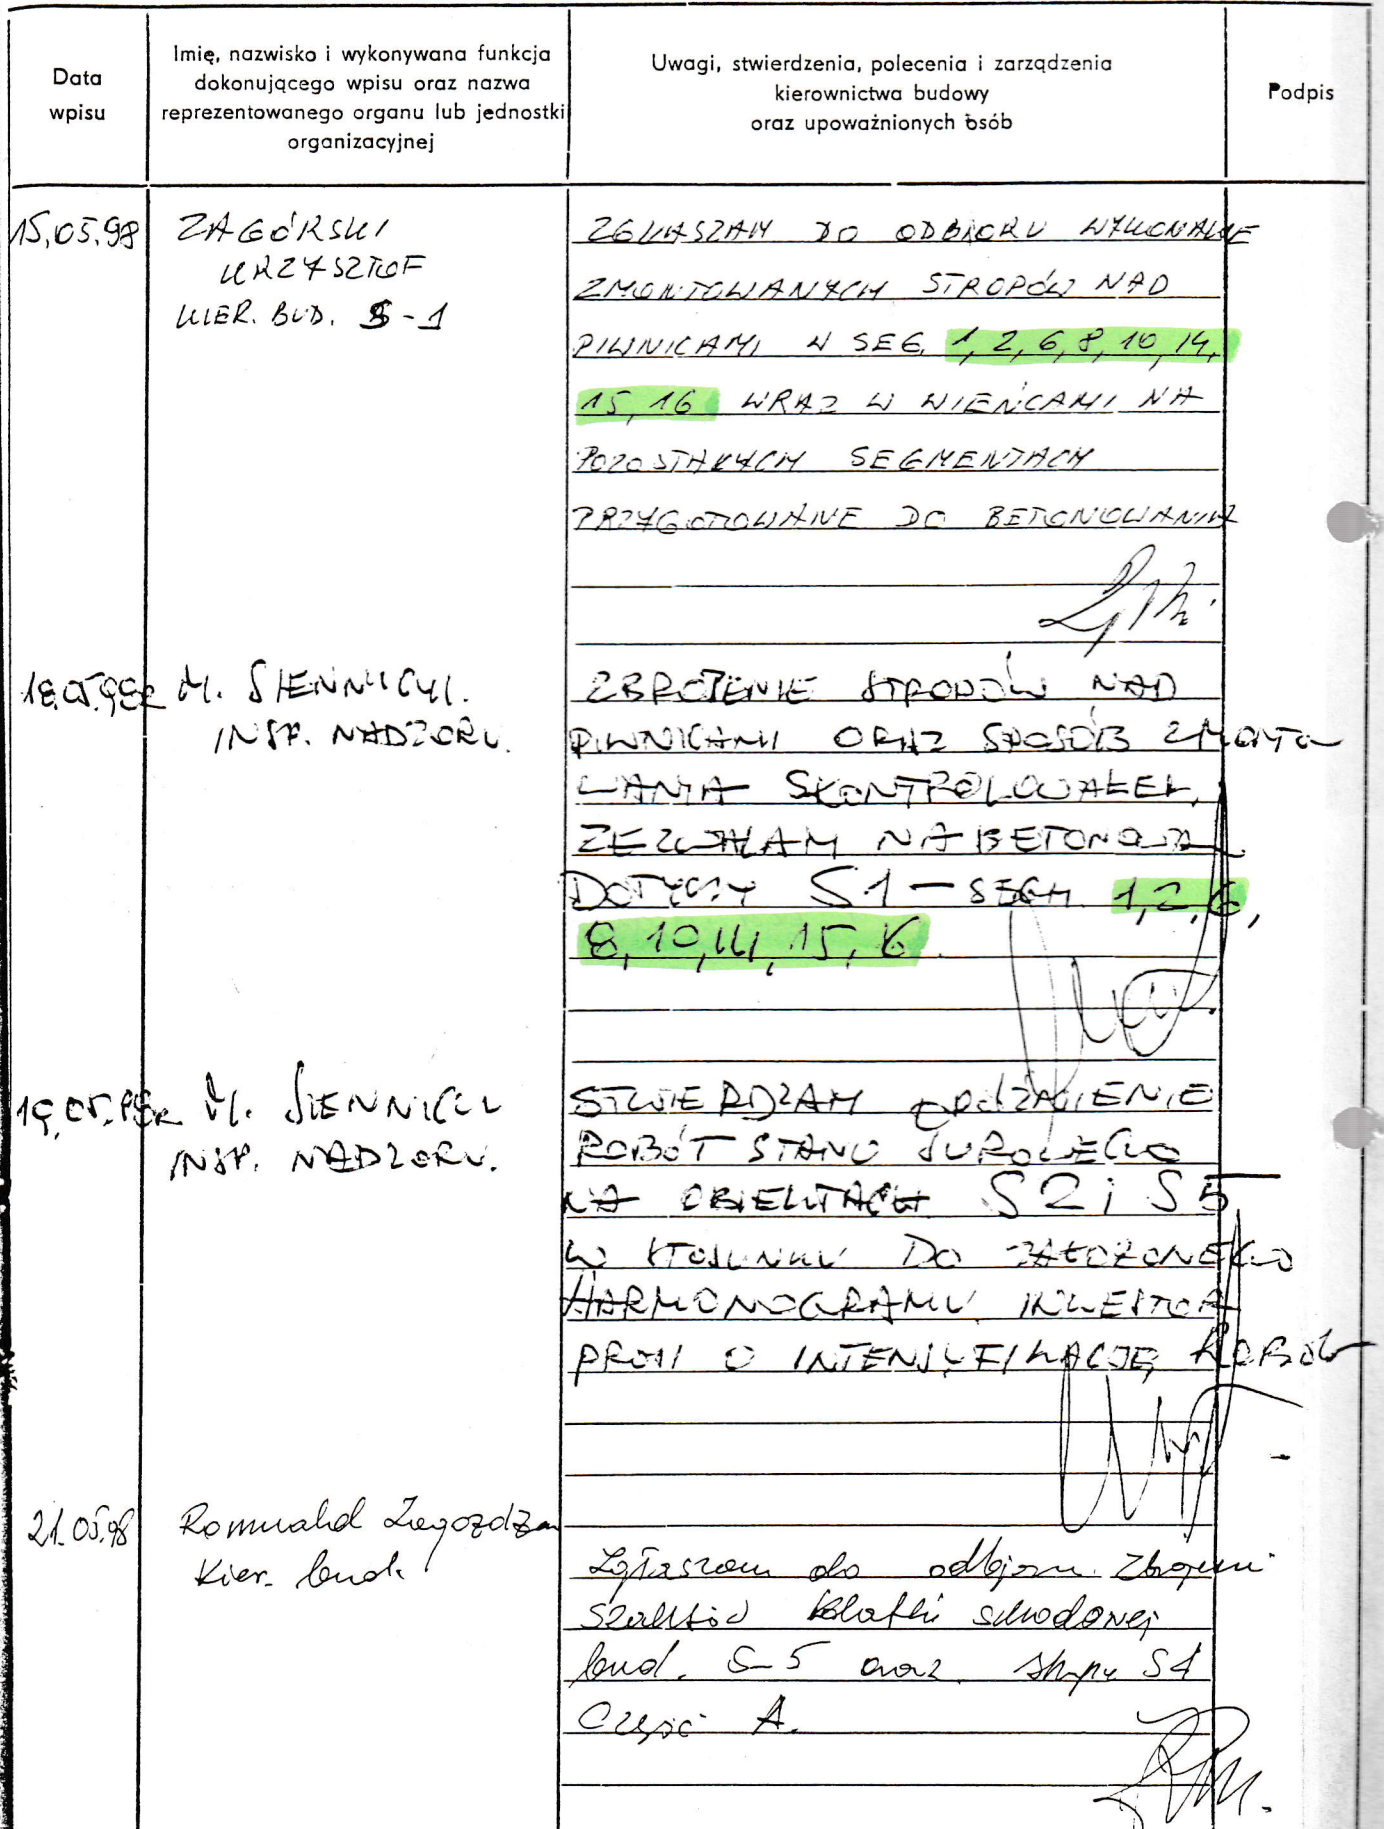 Data
wpisu
Imię, nazwisko i wykonywana funkcja
dokonującego wpisu oraz nazwa
reprezentowanego organu lub jednostki
organizacyjnej
Uwagi, stwierdzenia, polecenia i zarządzenia
kierownictwa budowy
oraz upoważnionych osób
Podpis
15.05.98
ZAGÓRSKI
KRZYSZTOF
KIER. BUD. S-1
ZGŁASZAM DO ODBIORU WYKONANIE
ZMONTOWANYCH STROPÓW NAD
PIWNICAMI W SEG. 1, 2, 6, 8, 10, 14,
15, 16 WRAZ W WIEŃCAMI NA
POZOSTAŁYCH SEGMENTACH
PRZYGOTOWANE DO BETONOWANIA
18.05.98r M. SIENNICKI.
INSP. NADZORU.
ZBROJENIE STROPÓW NAD
PIWNICAMI ORAZ SPOSÓB ZMONTO
WANIA SKONTROLOWAŁEM.
ZEZWALAM NA BETONOWA
DOTYCZY S1 – SEGM. 1, 2, 6,
8, 10, 14, 15, 16.
19.05.98r M. SIENNICKI
INSP. NADZORU.
STWIERDZAM OPÓŹNIENIE
ROBÓT STANU SUROWEGO
NA OBIEKTACH S2 i S5
W STOSUNKU DO ZAŁOŻONEGO
HARMONOGRAMU. INWESTOR
PROSI O INTENSYFIKACJĘ ROBÓT
21.05.98
Romuald
Kier. bud.
Zgłaszam do odbioru
klatki schodowej
bud. S-5 oraz S1
Część A.